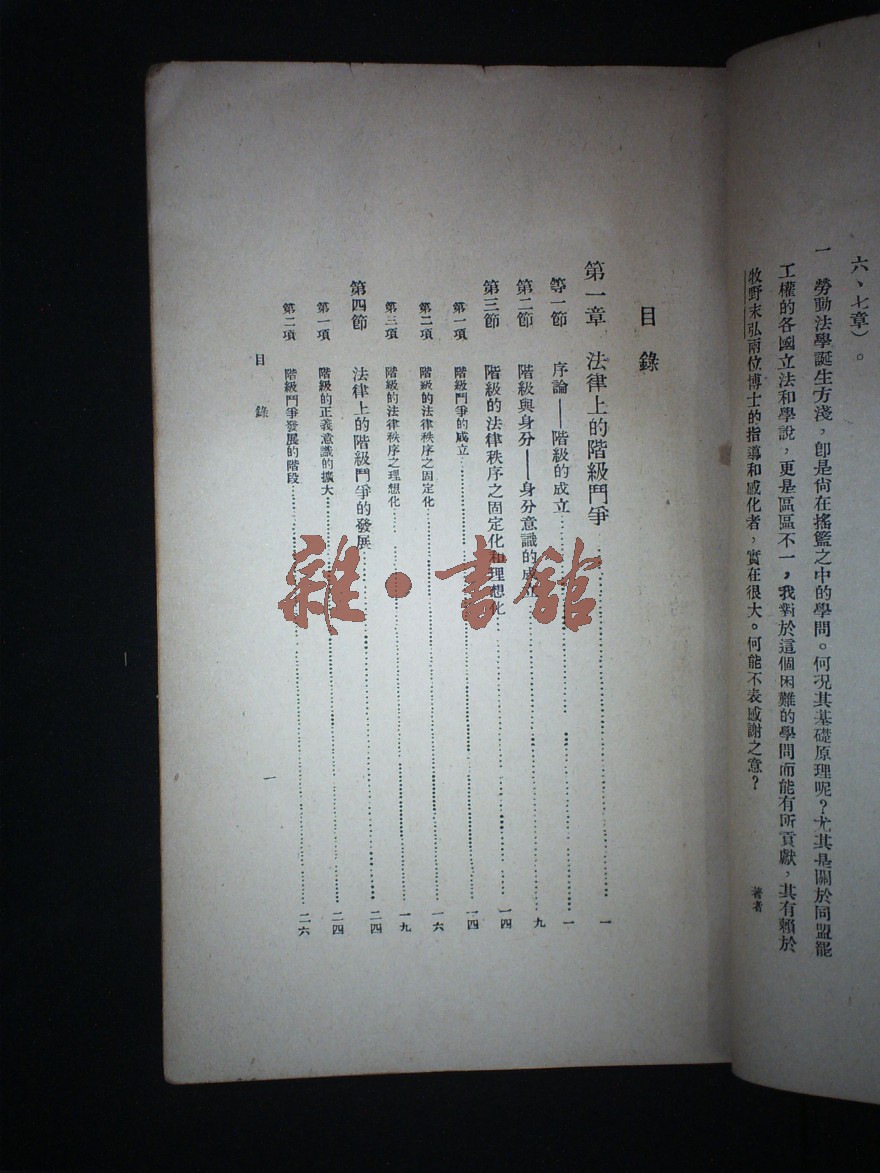 六、七章）。
一　勞動法學誕生方淺，卽是尙在搖籃之中的學問。何況其基礎原理呢？尤其是關於同盟罷
工權的各國立法和學說，更是區區不一，我對於這個困難的學問而能有所貢獻，其有賴於
牧野末弘兩位博士的指導和感化者，實在很大。何能不表感謝之意？
著者
目錄
第一章　法律上的階級鬥爭……一
第一節　序論——階級的成立……一
第二節　階級與身分——身分意識的成立……九
第三節　階級的法律秩序之固定化和理想化……一四
第一項　階級鬥爭的成立……一四
第二項　階級的法律秩序之固定化……一六
第三項　階級的法律秩序之理想化……一九
第四節　法律上的階級鬥爭的發展……二四
第一項　階級的正義意識的擴大……二四
第二項　階級鬥爭發展的階段……二六
目錄　一
雜·書館